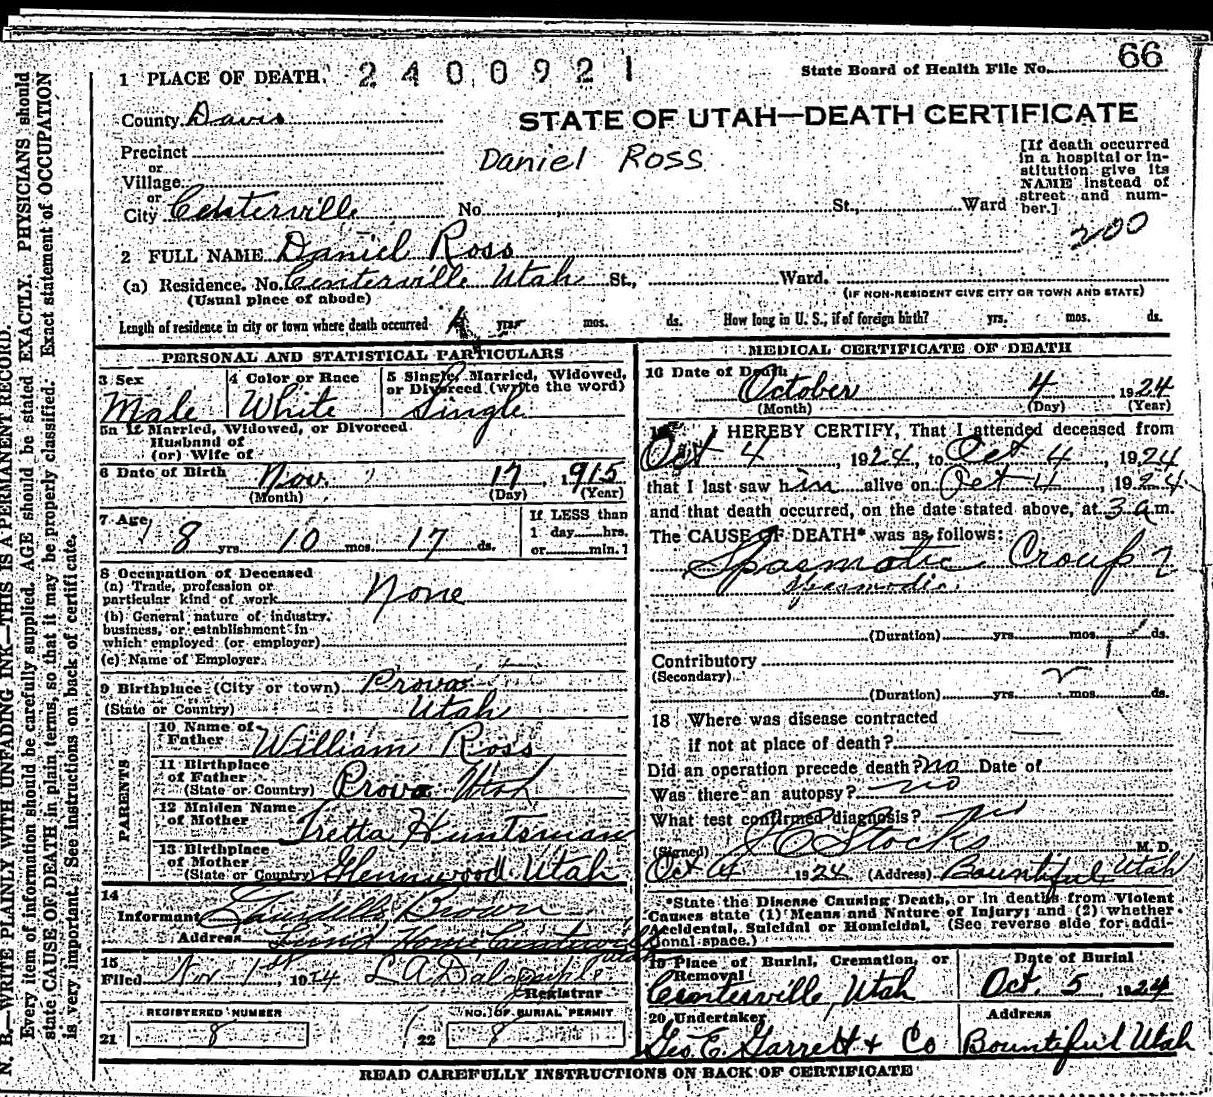 66
State Board of Health File No.
1 PLACE OF DEATH. 2400921
STATE OF UTAH—DEATH CERTIFICATE
County Davis
Precinct
or
Village
or
City Centerville No. St., Ward
Daniel Ross
[If death occurred in a hospital or institution give its NAME instead of street and number.]
200
2 FULL NAME Daniel Ross
(a) Residence. No. Centerville Utah St., Ward.
(Usual place of abode) (IF NON-RESIDENT GIVE CITY OR TOWN AND STATE)
Length of residence in city or town where death occurred yrs. mos. ds. How long in U. S., if of foreign birth? yrs. mos. ds.
PERSONAL AND STATISTICAL PARTICULARS
3 Sex Male
4 Color or Race White
5 Single, Married, Widowed, or Divorced (write the word) Single
5a If Married, Widowed, or Divorced
Husband of
(or) Wife of
6 Date of Birth Nov. 17, 1915
(Month) (Day) (Year)
7 Age 8 yrs. 10 mos. 17 ds.
If LESS than
1 day hrs.
or min. ?
8 Occupation of Deceased
(a) Trade, profession or
particular kind of work None
(b) General nature of industry,
business, or establishment in
which employed (or employer)
(c) Name of Employer
9 Birthplace (City or town) Provo
(State or Country) Utah
PARENTS
10 Name of Father William Ross
11 Birthplace of Father (State or Country) Provo Utah
12 Maiden Name of Mother Tretta Huntsman
13 Birthplace of Mother (State or Country) Glennwood Utah
14
Informant Brown
Address Lund Home Centerville Utah
15
Filed Nov 1st, 1924 L A Dalrymple
Registrar
REGISTERED NUMBER
21 8
NO. OF BURIAL PERMIT
22 8
MEDICAL CERTIFICATE OF DEATH
16 Date of Death October 4 1924
(Month) (Day) (Year)
17 I HEREBY CERTIFY, That I attended deceased from
Oct 4, 1924, to Oct 4, 1924
that I last saw him alive on Oct 4, 1924
and that death occurred, on the date stated above, at 3 a.m.
The CAUSE OF DEATH* was as follows:
Spasmatic Croup ?
spasmodic.
(Duration) yrs. mos. ds.
Contributory
(Secondary)
(Duration) yrs. mos. ds.
18 Where was disease contracted
if not at place of death?
Did an operation precede death? no Date of
Was there an autopsy? no
What test confirmed diagnosis? no
(Signed) J C Stocks M. D.
Oct 4 1924 (Address) Bountiful Utah
*State the Disease Causing Death, or in deaths from Violent
Causes state (1) Means and Nature of Injury; and (2) whether
Accidental, Suicidal or Homicidal. (See reverse side for addi-
tional space.)
19 Place of Burial, Cremation, or Removal
Centerville, Utah
Date of Burial
Oct. 5, 1924
20 Undertaker
Geo. E. Garrett & Co
Address
Bountiful Utah
READ CAREFULLY INSTRUCTIONS ON BACK OF CERTIFICATE
N. B.—WRITE PLAINLY WITH UNFADING INK—THIS IS A PERMANENT RECORD.
Every item of information should be carefully supplied. AGE should be stated EXACTLY. PHYSICIANS should
state CAUSE OF DEATH in plain terms, so that it may be properly classified. Exact statement of OCCUPATION
is very important. See instructions on back of certificate.